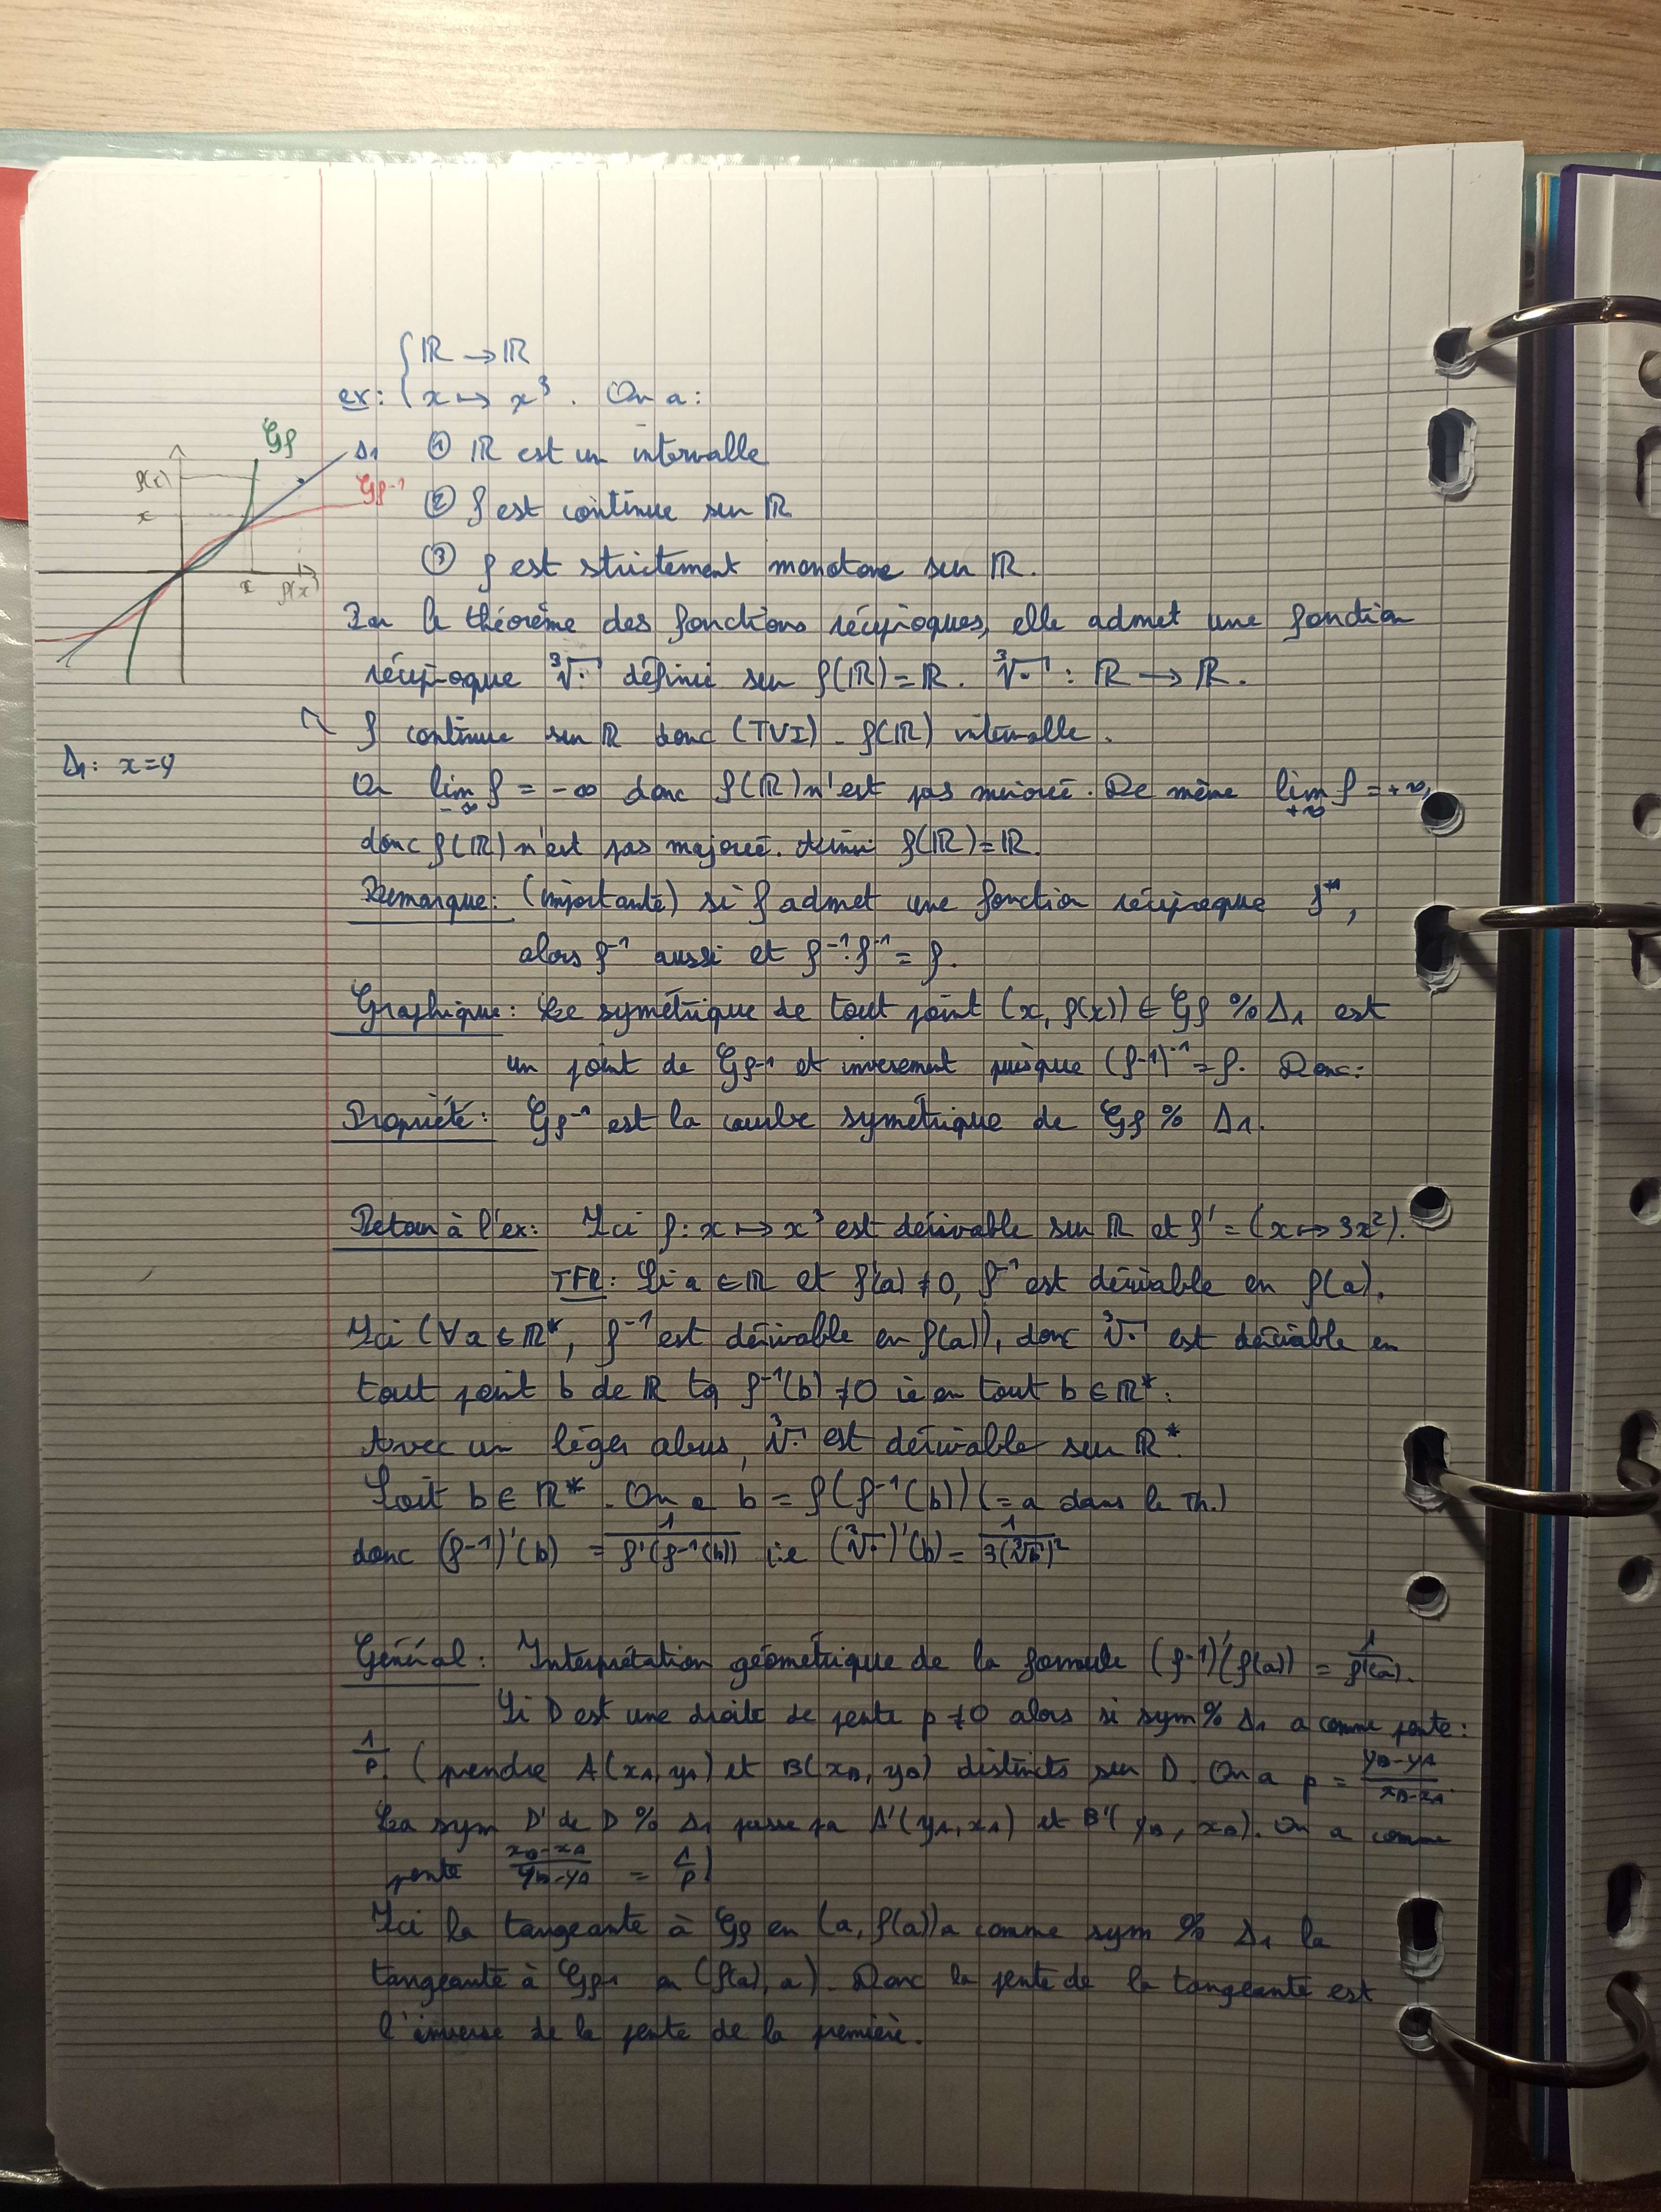 { ℝ → ℝ
ex: { x ↦ x³. On a:
① ℝ est un intervalle
② f est continue sur ℝ
③ f est strictement monotone sur ℝ.
𝒞f
Δ1
𝒞f⁻¹
f(x)
x
x f(x)
Δ1: x=y
Par le théorème des fonctions réciproques, elle admet une fonction
réciproque ∛· définie sur f(ℝ)=ℝ. ∛· : ℝ → ℝ.
f continue sur ℝ donc (TVI) f(ℝ) intervalle.
Or lim f = -∞ donc f(ℝ) n'est pas minoré. De même lim f = +∞,
-∞ +∞
donc f(ℝ) n'est pas majoré. Ainsi f(ℝ)=ℝ.
Remarque: (importante) si f admet une fonction réciproque f⁻¹,
alors f⁻¹ aussi et f⁻¹·f⁻¹ = f.
Graphique: Le symétrique de tout point (x, f(x)) ∈ 𝒞f % Δ1 est
un point de 𝒞f⁻¹ et inversement puisque (f-1)⁻¹ = f. Donc:
Propriété: 𝒞f⁻¹ est la courbe symétrique de 𝒞f % Δ1.
Retour à l'ex: Ici f: x ↦ x³ est dérivable sur ℝ et f' = (x ↦ 3x²).
TFR: Si a ∈ ℝ et f'(a) ≠ 0, f⁻¹ est dérivable en f(a).
Ici (∀a ∈ ℝ*, f⁻¹ est dérivable en f(a)), donc ∛· est dérivable en
tout point b de ℝ tq f⁻¹(b) ≠ 0 ie en tout b ∈ ℝ*.
Avec un léger abus, ∛· est dérivable sur ℝ*.
Soit b ∈ ℝ*. On a b = f(f⁻¹(b)) (= a dans le Th.)
donc (f-1)'(b) = 1/f'(f-1(b)) i.e (∛·)'(b) = 1/3(∛b)²
Général: Interprétation géométrique de la formule (f-1)'(f(a)) = 1/f'(a).
Si D est une droite de pente p ≠ 0 alors si sym % Δ1 a comme pente:
1/p. (prendre A(xA, yA) et B(xB, yB) distincts sur D. On a p = yB-yA/xB-xA.
La sym D' de D % Δ1 passe pa A'(yA, xA) et B'(yB, xB). On a comme
pente xB-xA/yB-yA = 1/p)
Ici la tangeante à 𝒞f en (a, f(a)) a comme sym % Δ1 la
tangeante à 𝒞f-1 en (f(a), a). Donc la pente de la tangeante est
l'inverse de la pente de la première.